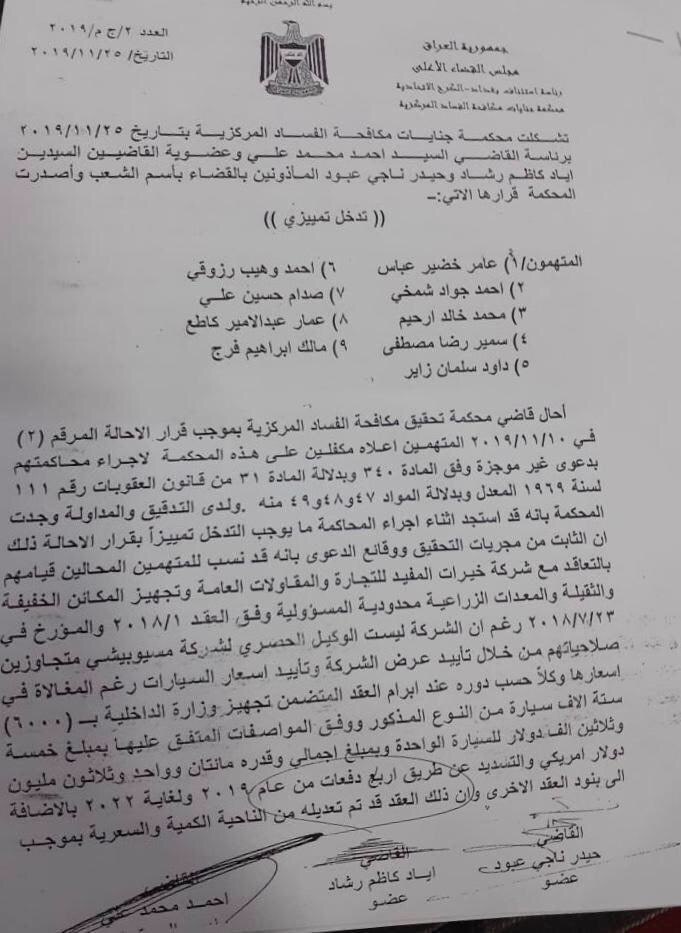 بسم الله الرحمن الرحيم
جمهورية العراق
مجلس القضاء الأعلى
رئاسة استئناف بغداد-الكرخ الاتحادية
محكمة جنايات مكافحة الفساد المركزية
العدد ٢/ج م/٢٠١٩
التاريخ/ ٢٠١٩/١١/٢٥
تشكلت محكمة جنايات مكافحة الفساد المركزية بتاريخ ٢٠١٩/١١/٢٥
برئاسة القاضي السيد احمد محمد علي وعضوية القاضيين السيدين
اياد كاظم رشاد وحيدر ناجي عبود المأذونين بالقضاء بأسم الشعب وأصدرت
المحكمة قرارها الاتي:-
(( تدخل تمييزي ))
المتهمون/١) عامر خضير عباس
٢) احمد جواد شمخي
٣) محمد خالد ارحيم
٤) سمير رضا مصطفى
٥) داود سلمان زاير
٦) احمد وهيب رزوقي
٧) صدام حسين علي
٨) عمار عبدالامير كاطع
٩) مالك ابراهيم فرج
أحال قاضي محكمة تحقيق مكافحة الفساد المركزية بموجب قرار الاحالة المرقم (٢)
في ٢٠١٩/١١/١٠ المتهمين اعلاه مكفلين على هذه المحكمة لاجراء محاكمتهم
بدعوى غير موجزة وفق المادة ٣٤٠ وبدلالة المادة ٣١ من قانون العقوبات رقم ١١١
لسنة ١٩٦٩ المعدل وبدلالة المواد ٤٧و٤٨و٤٩ منه .ولدى التدقيق والمداولة وجدت
المحكمة بانه قد استجد اثناء اجراء المحاكمة ما يوجب التدخل تمييزاً بقرار الاحالة ذلك
ان الثابت من مجريات التحقيق ووقائع الدعوى بانه قد نسب للمتهمين المحالين قيامهم
بالتعاقد مع شركة خيرات المفيد للتجارة والمقاولات العامة وتجهيز المكائن الخفيفة
والثقيلة والمعدات الزراعية محدودية المسؤولية وفق العقد ٢٠١٨/١ والمؤرخ في
٢٠١٨/٧/٢٣ رغم ان الشركة ليست الوكيل الحصري لشركة مسيوبيشي متجاوزين
صلاحياتهم من خلال تأييد عرض الشركة وتأييد اسعار السيارات رغم المغالاة في
اسعارها وكلاً حسب دوره عند ابرام العقد المتضمن تجهيز وزارة الداخلية بـ (٦٠٠٠)
ستة الاف سيارة من النوع المذكور ووفق المواصفات المتفق عليها بمبلغ خمسة
وثلاثين الف دولار للسيارة الواحدة وبمبلغ إجمالي وقدره مائتان وواحد وثلاثون مليون
دولار امريكي والتسديد عن طريق اربع دفعات من عام ٢٠١٩ ولغاية ٢٠٢٢ بالاضافة
الى بنود العقد الاخرى وان ذلك العقد قد تم تعديله من الناحية الكمية والسعرية بموجب
القاضي
حيدر ناجي عبود
عضو
القاضي
اياد كاظم رشاد
عضو
القاضي
احمد محمد علي